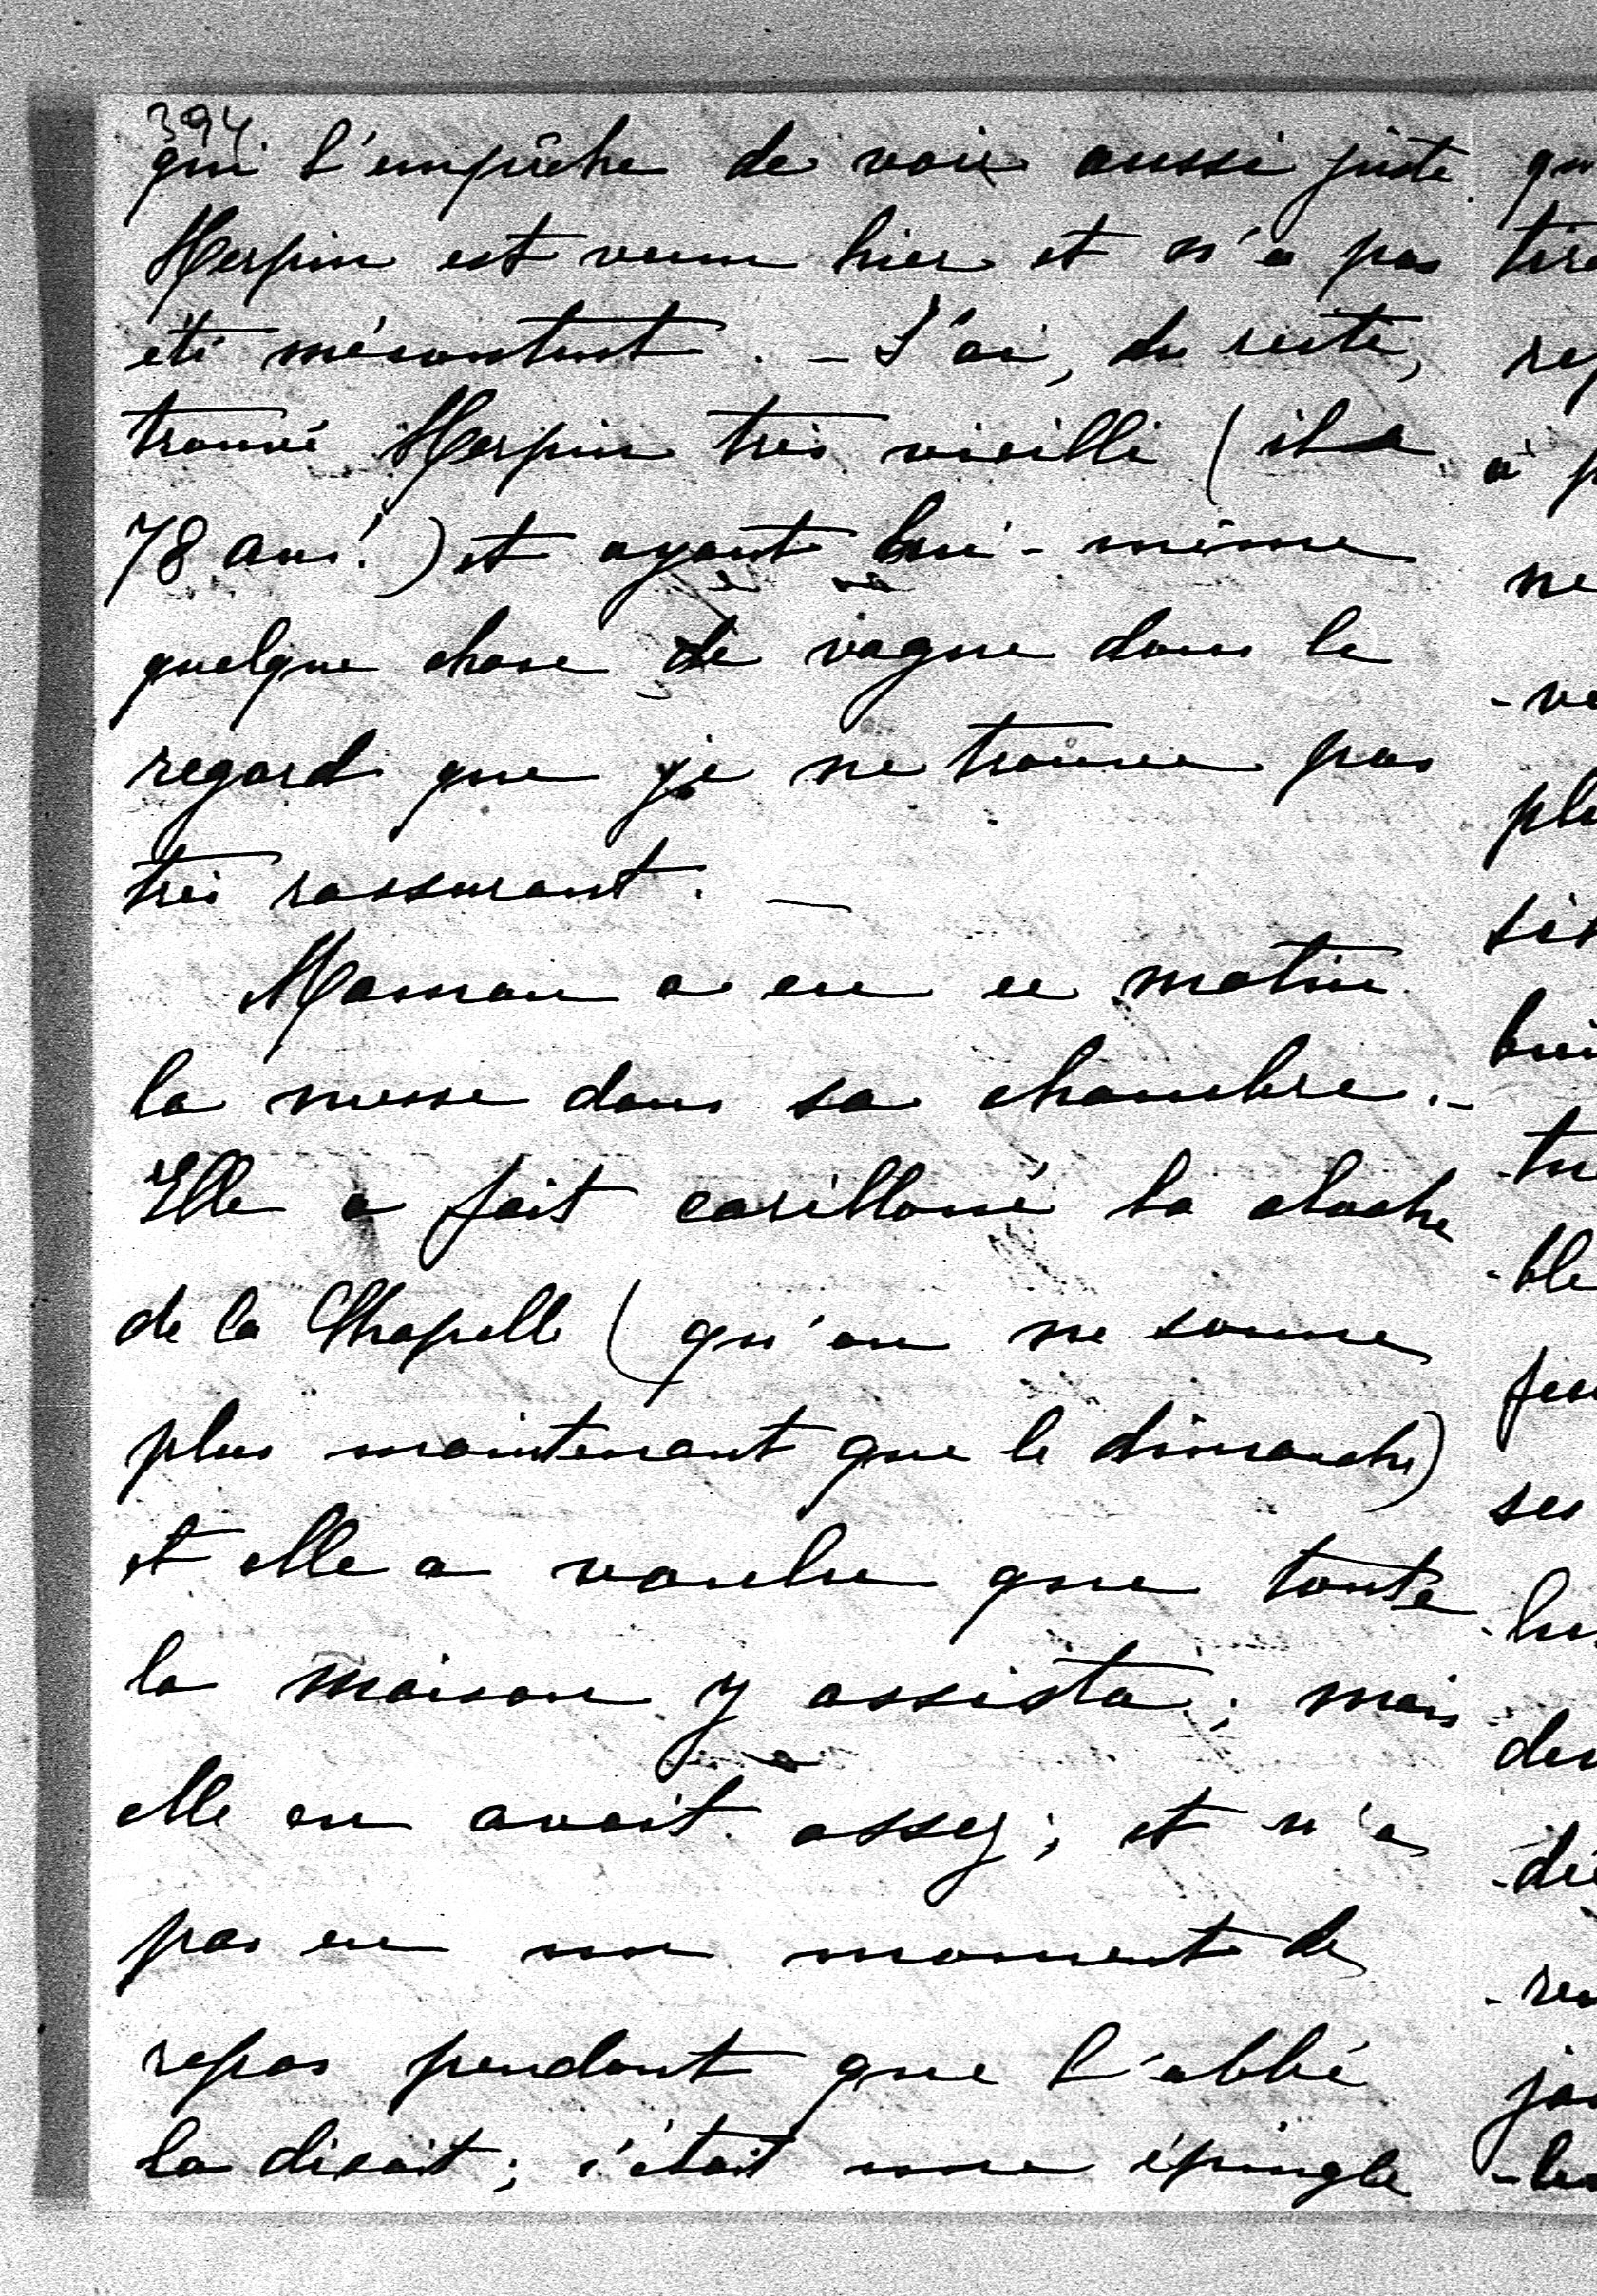 394
qui l'empêche de voir aussi juste.
Herpin est venu hier et n'a pas
été mécontent. - J'ai, du reste,
trouvé Herpin très vieilli (il a
78 ans!) et ayant lui-même
quelque chose de vague dans le
regard que je ne trouve pas
très rassurant. —
Maman a eu ce matin
la messe dans sa chambre. -
Elle a fait carilloné la cloche
de la Chapelle (qu'on ne sonne
plus maintenant que le dimanche)
et elle a voulu que toute
la maison y assista; mais
elle en avait assez; et n'a
pas eu un moment de
repos pendant que l'abbé
la disait; c'était une épingle